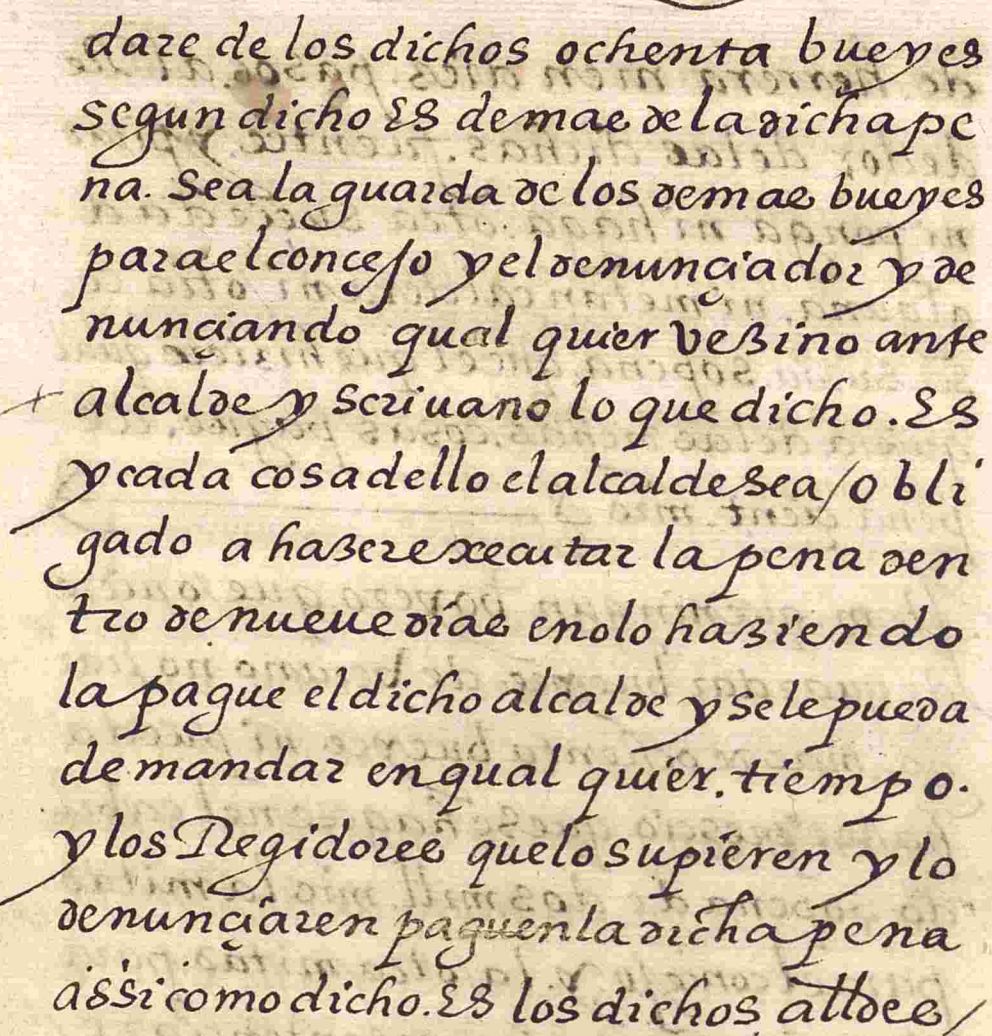 dare de los dichos ochenta bueyes
segun dicho Es demas de la dicha pe
na. Sea la guarda de los demas bueyes
para el concejo y el denunçiador y de
nunçiando qual quier vezino ante
alcalde y scriuano lo que dicho. Es
y cada cosa dello el alcalde sea / obli
gado a hazer executar la pena den
tro de nueue dias e no lo haziendo
la pague el dicho alcalde y se le pueda
demandar en qual quier. tiempo.
y los Regidores que lo supieren y lo
denunçiaren paguen la dicha pena
assi como dicho. Es los dichos alldes /